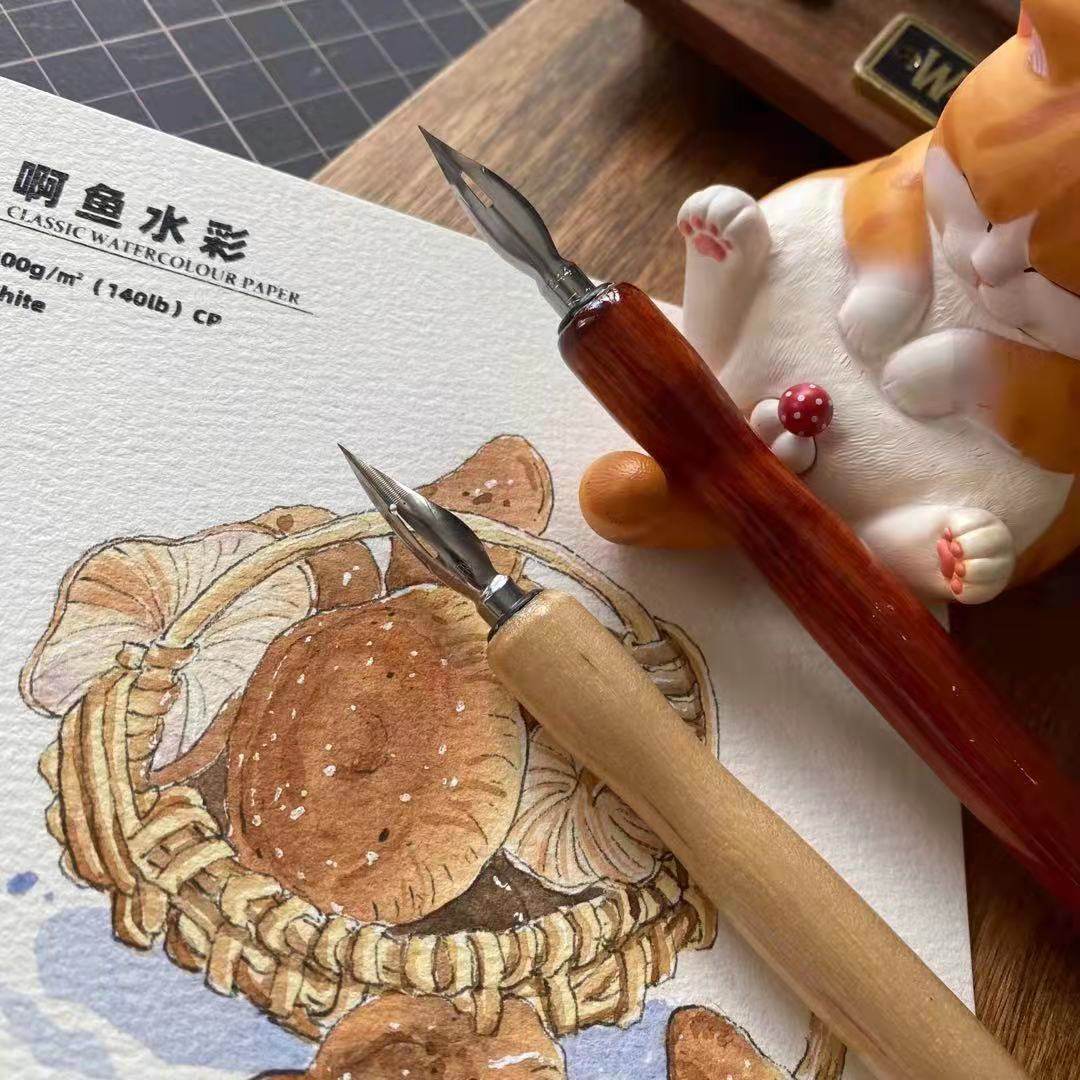 啊鱼水彩
CLASSIC WATERCOLOUR PAPER
00g/m² (140lb) CP
hite
W